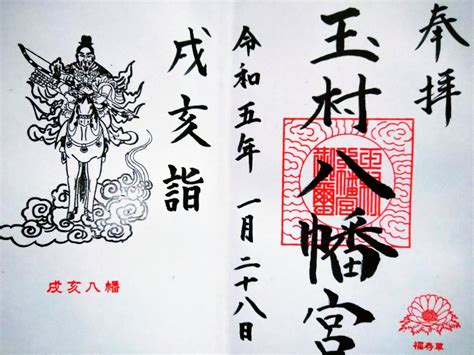 奉拝
玉村八幡宮
令和五年一月二十八日
戌亥詣
戌亥八幡
福寿草